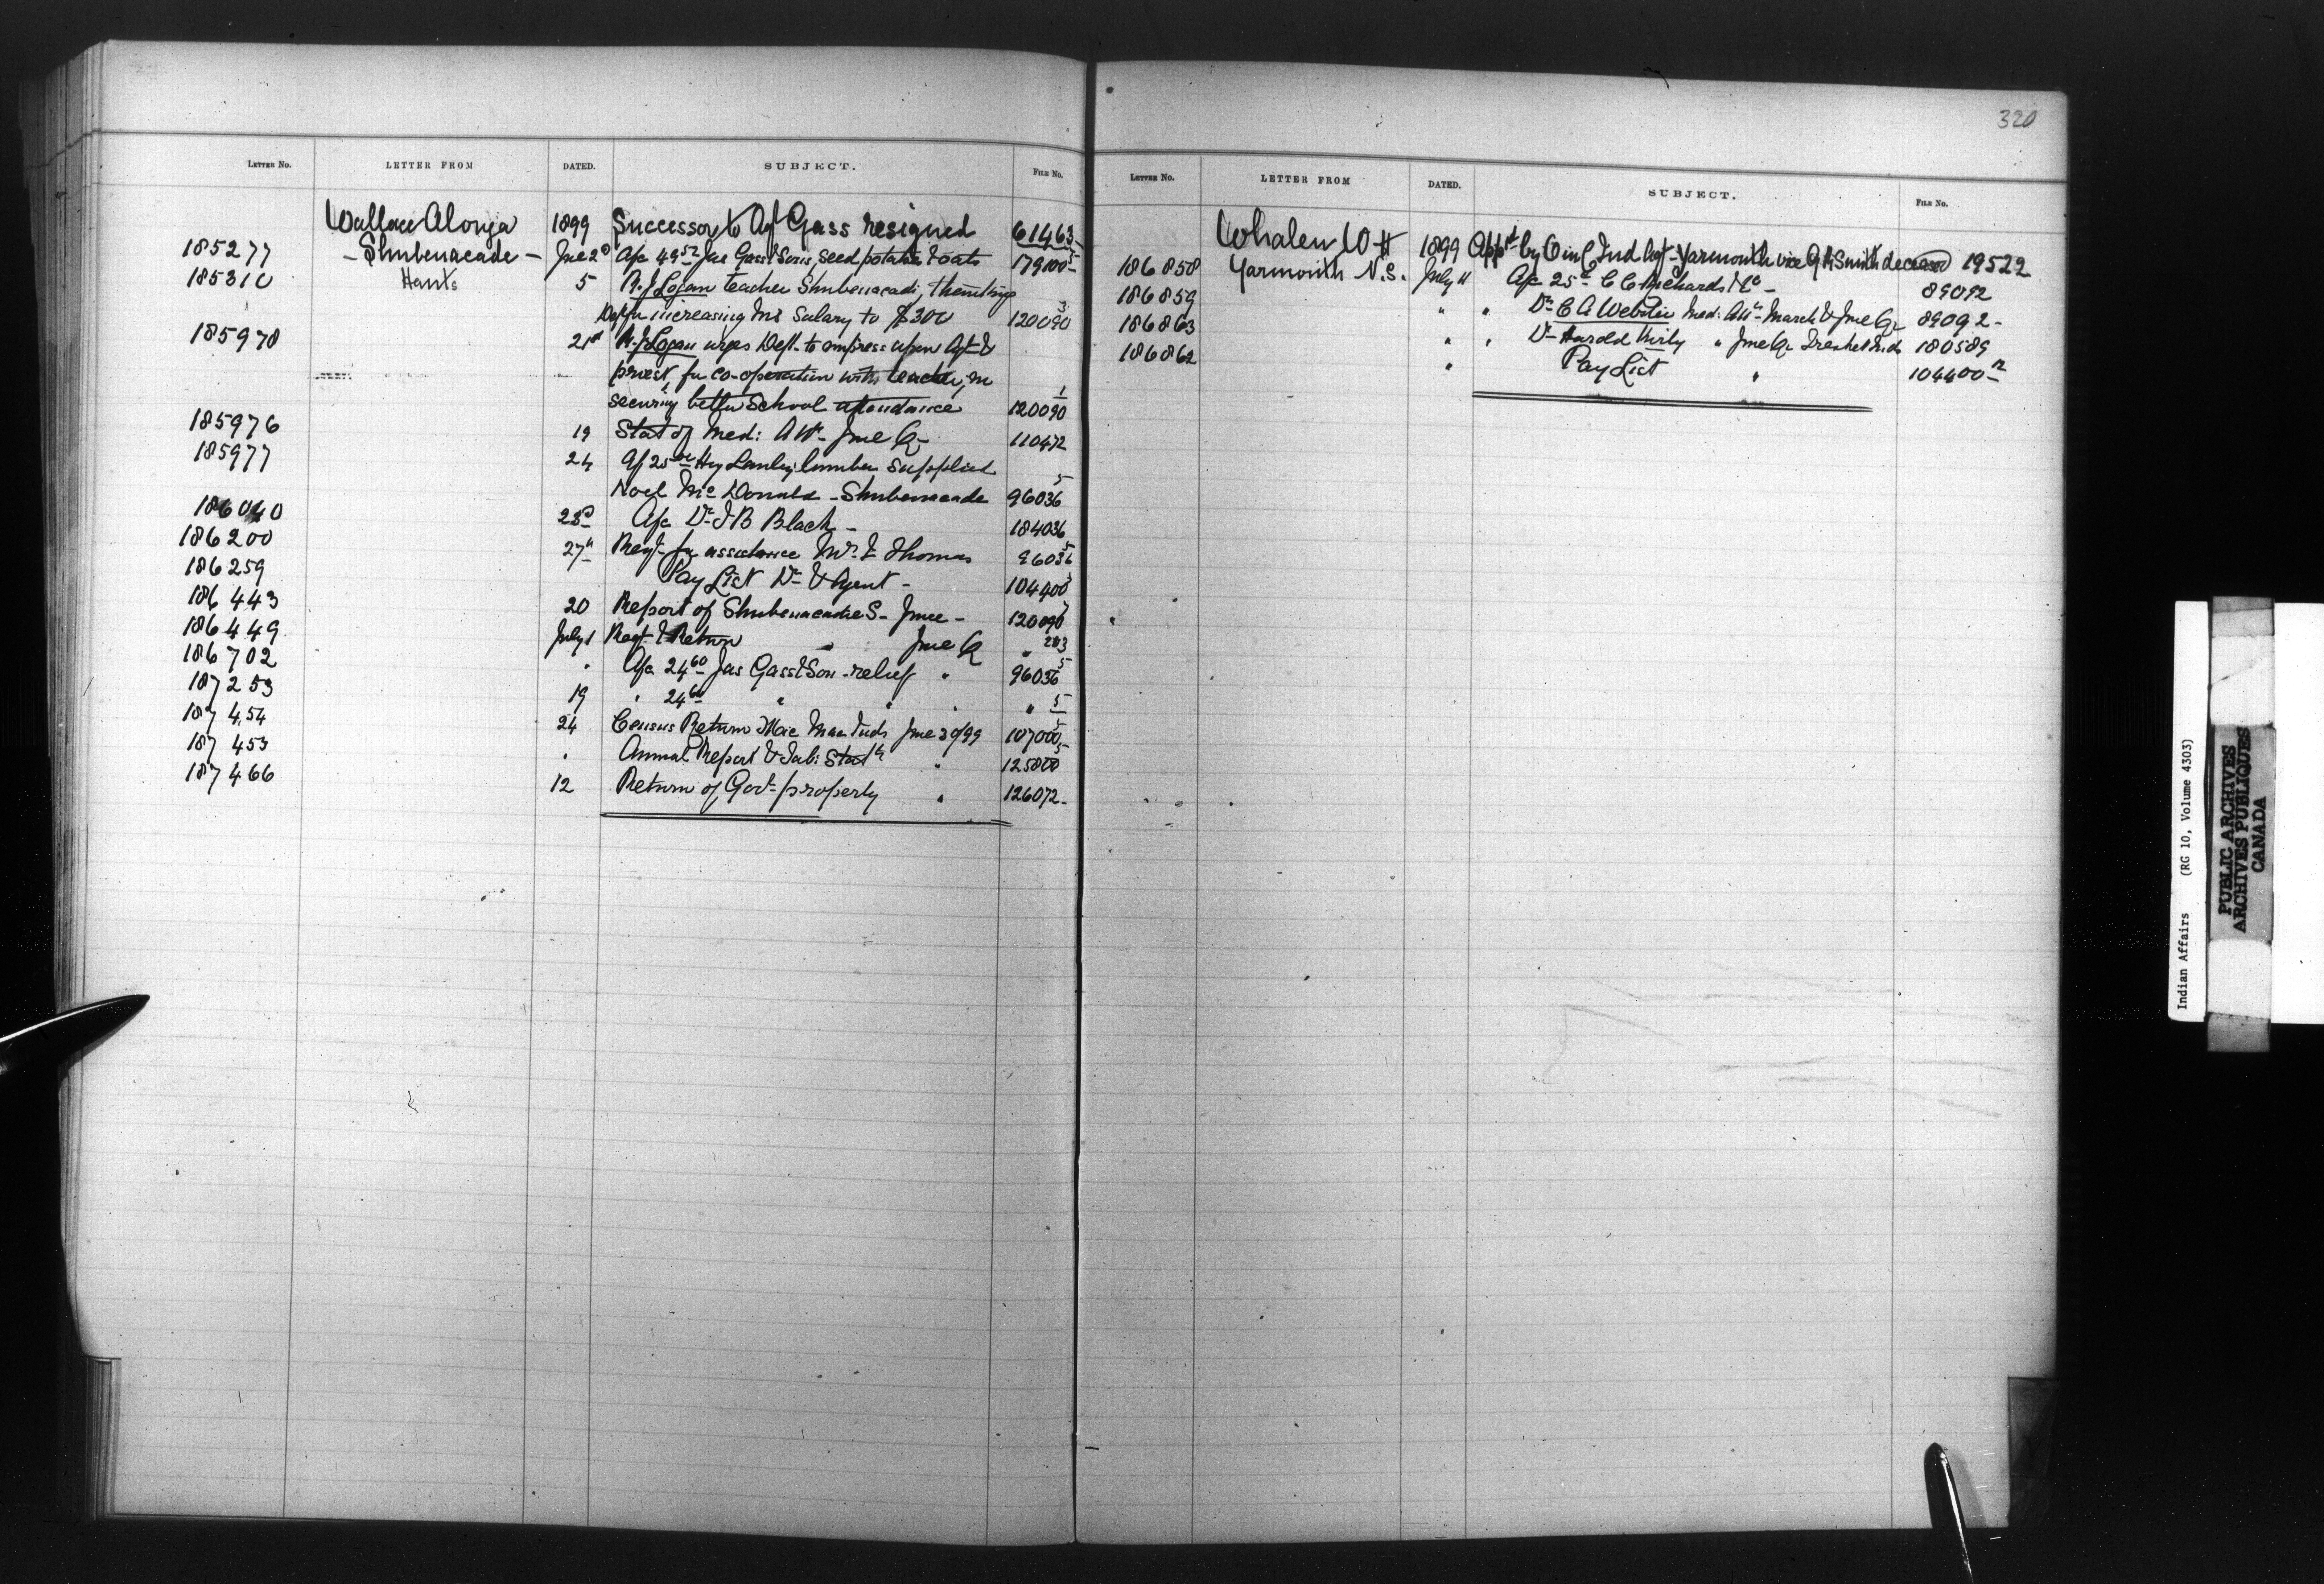 320
LETTER No. LETTER FROM DATED. SUBJECT. FILE No.
Wallace Alonza 1899 Successor to Agt Gass resigned 61463
185277 - Shubenacade - Jne 2d A/c 49.52 Jas Gass & Sons, seed potatoes & oats 179100-5
185310 Hants 5 R. J. Logan teacher Shubenacadi, thanking
Dept for increasing his Salary to $300 120090 3
185978 21st R. J. Logan urges Dept. to impress upon Agt &
priest, for co-operation with teacher, in
securing better School attendance 120090 1
185976 19 Stat of Med: Att- Jne Qr 110472
185977 24 A/c 25 lumber supplied 5
Noel McDonald - Shubenacade 96036
186040 23d A/c Dr D B Black - 184036
186200 27th Reqt for assistance Mrs Thomas 96036 5
186259 Pay List Dr & Agent - 104400
186443 20 Report of Shubenacadie S- June - 120090
186449 July 1 Reqt & Return " Jne Qr " 283
186702 " A/c 24.60 Jas Gass & Son - relief " 96036 5
187253 19 " 24.60 " " " " 5
187454 24 Census Return Mic Mac Inds Jne 30/99 107000 5
187453 " Annual Report & Tab: Statt " 125800 5
187466 12 Return of Govt property " 126072-
LETTER No. LETTER FROM DATED. SUBJECT. FILE No.
Whalen W H 1899 Appd by O in C Ind Agt - Yarmouth vice G R Smith deceased 19522
186858 Yarmouth N.S. July 11 A/c 25 C C Richards & Co - 89092
186859 " " Dr C A Webster Med: Att- March & Jne Qr 89092-
186863 " " Dr Harold " Jne Qr Inds 180589
186862 " Pay List " 104400-12
Indian Affairs (RG 10, Volume 4303)
PUBLIC ARCHIVES
ARCHIVES PUBLIQUES
CANADA